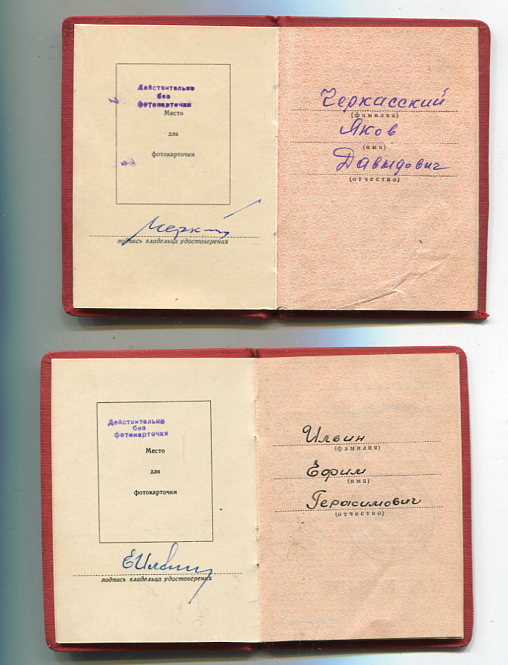 Действительно
без
фотокарточки
Место
для
фотокарточки
подпись владельца удостоверения
Черкасский
(фамилия)
Яков
(имя)
Давыдович
(отчество)
Действительно
без
фотокарточки
Место
для
фотокарточки
ЕИльин
подпись владельца удостоверения
Ильин
(фамилия)
Ефим
(имя)
Герасимович
(отчество)